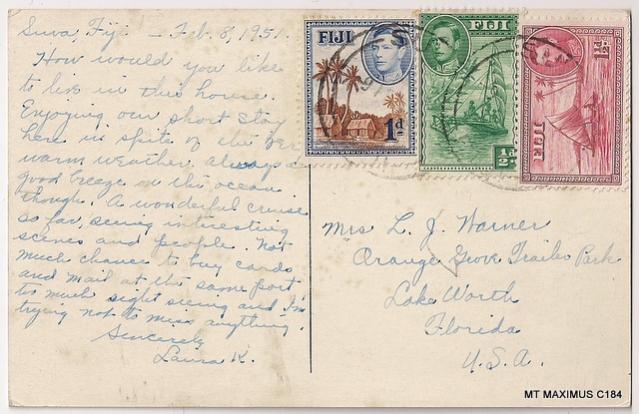 Suva, Fiji — Feb. 8, 1951.
How would you like
to live in this house.
Enjoying our short stay
here in spite of the very
warm weather. Always a
good breeze on the ocean
though. A wonderful cruise
so far, seeing interesting
scenes and people. Not
much chance to buy cards
and mail at the same port
to much sight seeing and I'm
trying not to miss anything.
Sincerely
Laura K.
FIJI
1d
FIJI
1/2d
FIJI
1½d
Mrs L. J. Warner
Orange Grove Trailer Park
Lake Worth
Florida
U.S.A.
MT MAXIMUS C184